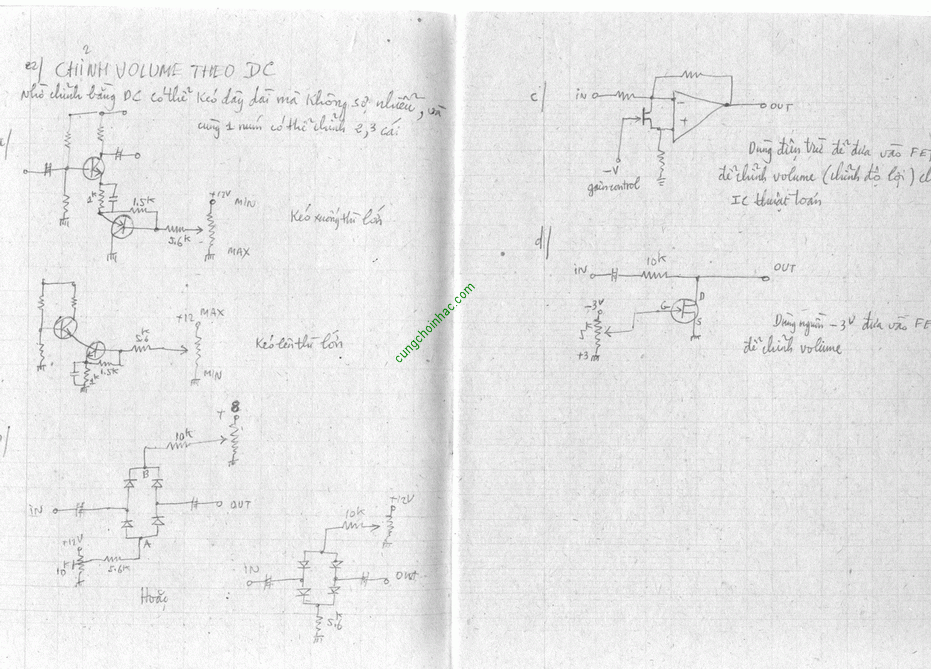 2
e2/ CHỈNH VOLUME THEO DC
Nhờ chỉnh bằng DC có thể kéo dây dài mà không sợ nhiễu, và
cùng 1 núm có thể chỉnh 2, 3 cái
a/
1K
1.5K
5.6K
+12V
MIN
MAX
Kéo xuống thì lớn
+12
MAX
5.6
1.5K
1K
MIN
Kéo lên thì lớn
b/
+
8
10K
B
IN
OUT
A
+12V
10K
5.6K
Hoặc
+12V
10K
IN
OUT
5.6K
c/
IN
-
+
OUT
-V
gain control
Dùng điện trở để đưa vào FET
để chỉnh volume (chỉnh độ lợi) ch
IC thuật toán
d/
IN
10K
OUT
-3V
5K
+3
G
D
S
Dùng nguồn -3V đưa vào FE
để chỉnh volume
cungchoinhac.com